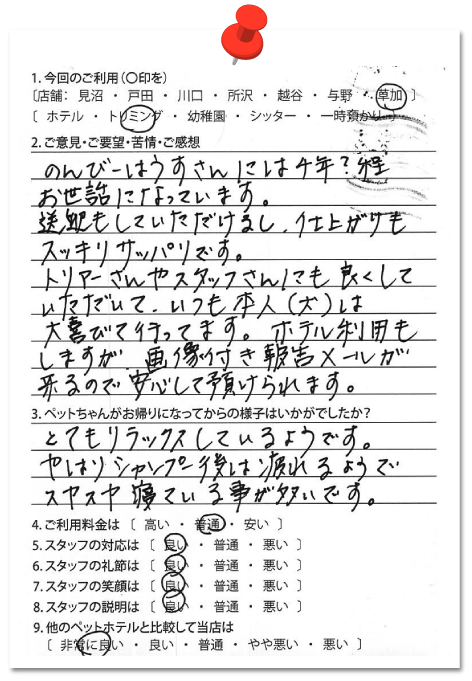 1. 今回のご利用(〇印を)
〔店舗: 見沼 ・ 戸田 ・ 川口 ・ 所沢 ・ 越谷 ・ 与野 ・ 草加 〕
〔 ホテル ・ トリミング ・ 幼稚園 ・ シッター ・ 一時預かり 〕
2.ご意見・ご要望・苦情・ご感想
のんびーはうすさんには4年?程
お世話になっています。
送迎もしていただけるし、仕上がりも
スッキリサッパリです。
トリマーさんやスタッフさんにも良くして
いただいて、いつも本人(犬)は
大喜びで行ってます。ホテル利用も
しますが、画像付き報告メールが
来るので安心して預けられます。
3.ペットちゃんがお帰りになってからの様子はいかがでしたか?
とてもリラックスしているようです。
やはりシャンプー後は疲れるようで
スヤスヤ寝ている事が多いです。
4.ご利用料金は 〔 高い ・ 普通 ・ 安い 〕
5.スタッフの対応は 〔 良い ・ 普通 ・ 悪い 〕
6.スタッフの礼節は 〔 良い ・ 普通 ・ 悪い 〕
7.スタッフの笑顔は 〔 良い ・ 普通 ・ 悪い 〕
8.スタッフの説明は 〔 良い ・ 普通 ・ 悪い 〕
9.他のペットホテルと比較して当店は
〔 非常に良い ・ 良い ・ 普通 ・ やや悪い ・ 悪い 〕